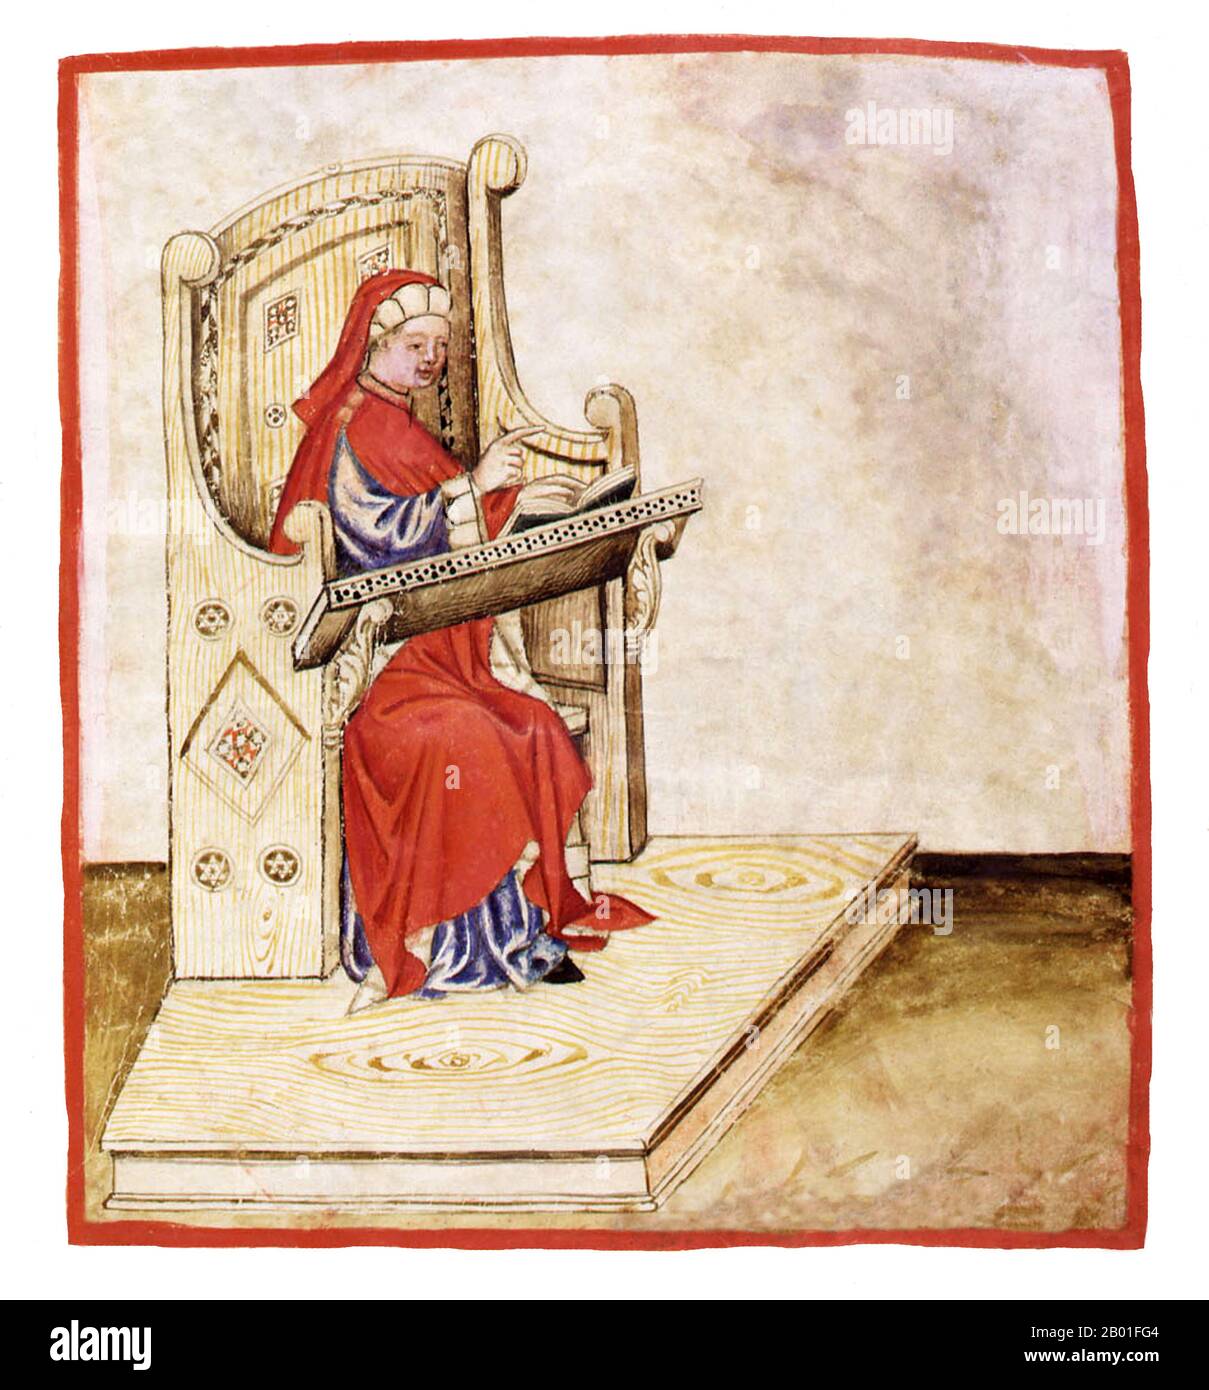 alamy
alamy
a
a
a
a
a
a
a
a
alamy
alamy
alamy
a
a
a
a
a
alamy
Image ID: 2B01FG4
www.alamy.com